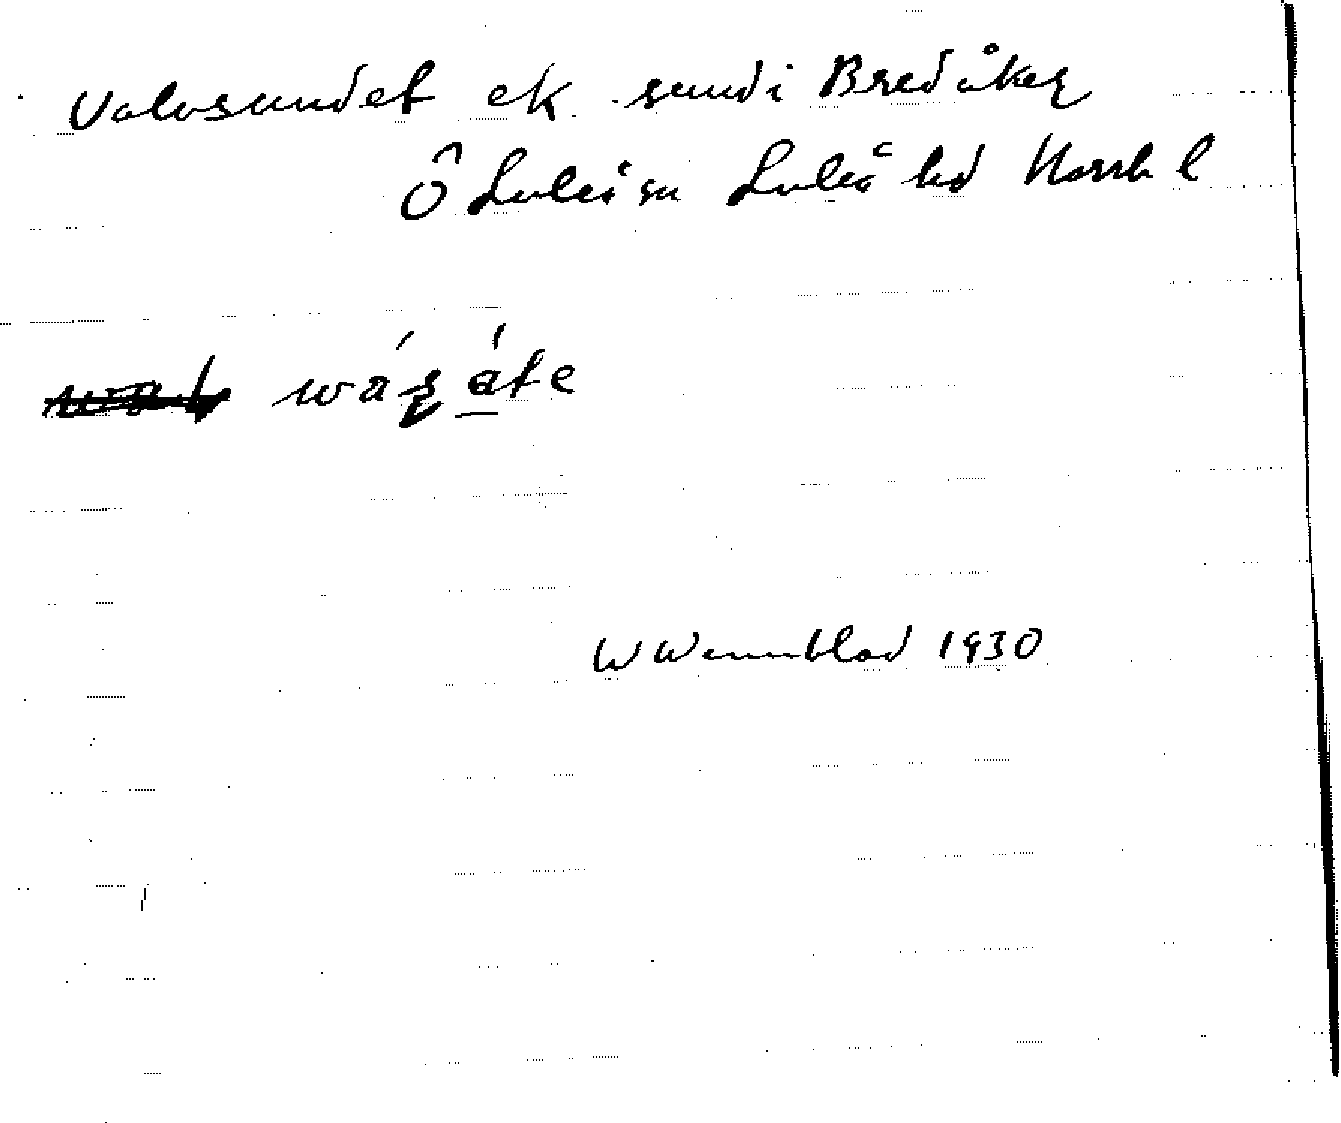 Valvsundet ek sund i Bredåker
Ö Luleå sn Luleå hd Norrb l
W Wennblad 1930